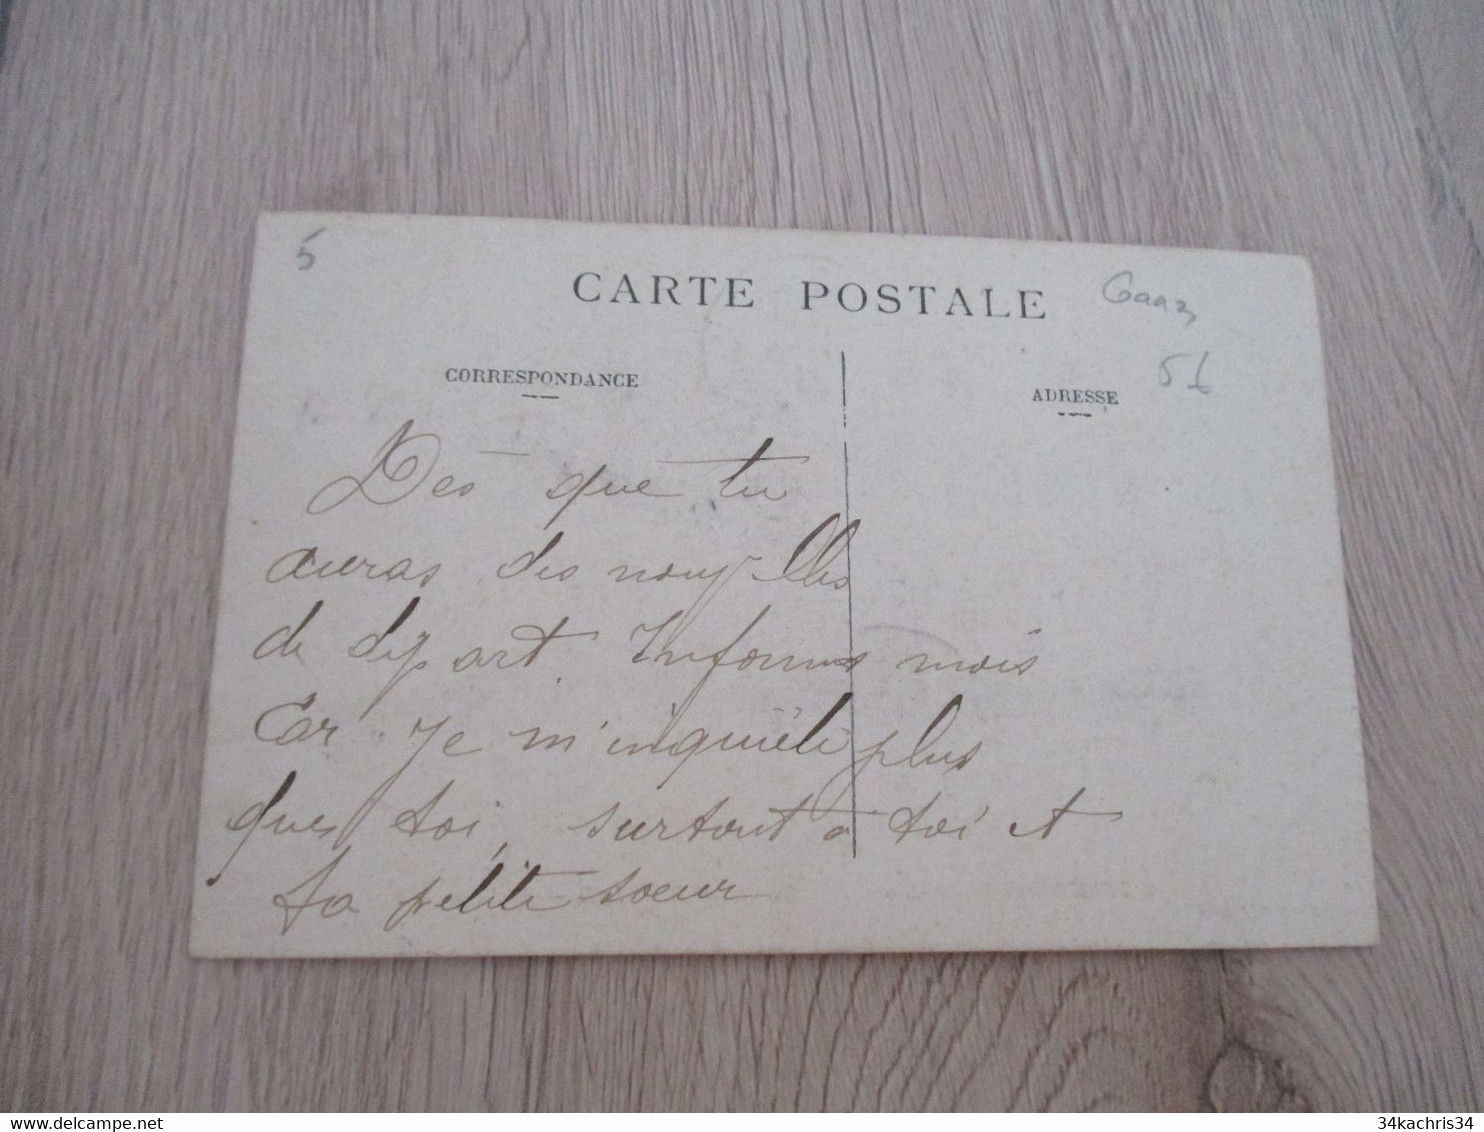 5
CARTE POSTALE
CORRESPONDANCE
ADRESSE
Des que tu
auras des nouvelles
de départ. Informes mois
Car Je m'inquiète plus
ques toi, surtout à toi et
ta petite soeur
34kachris34